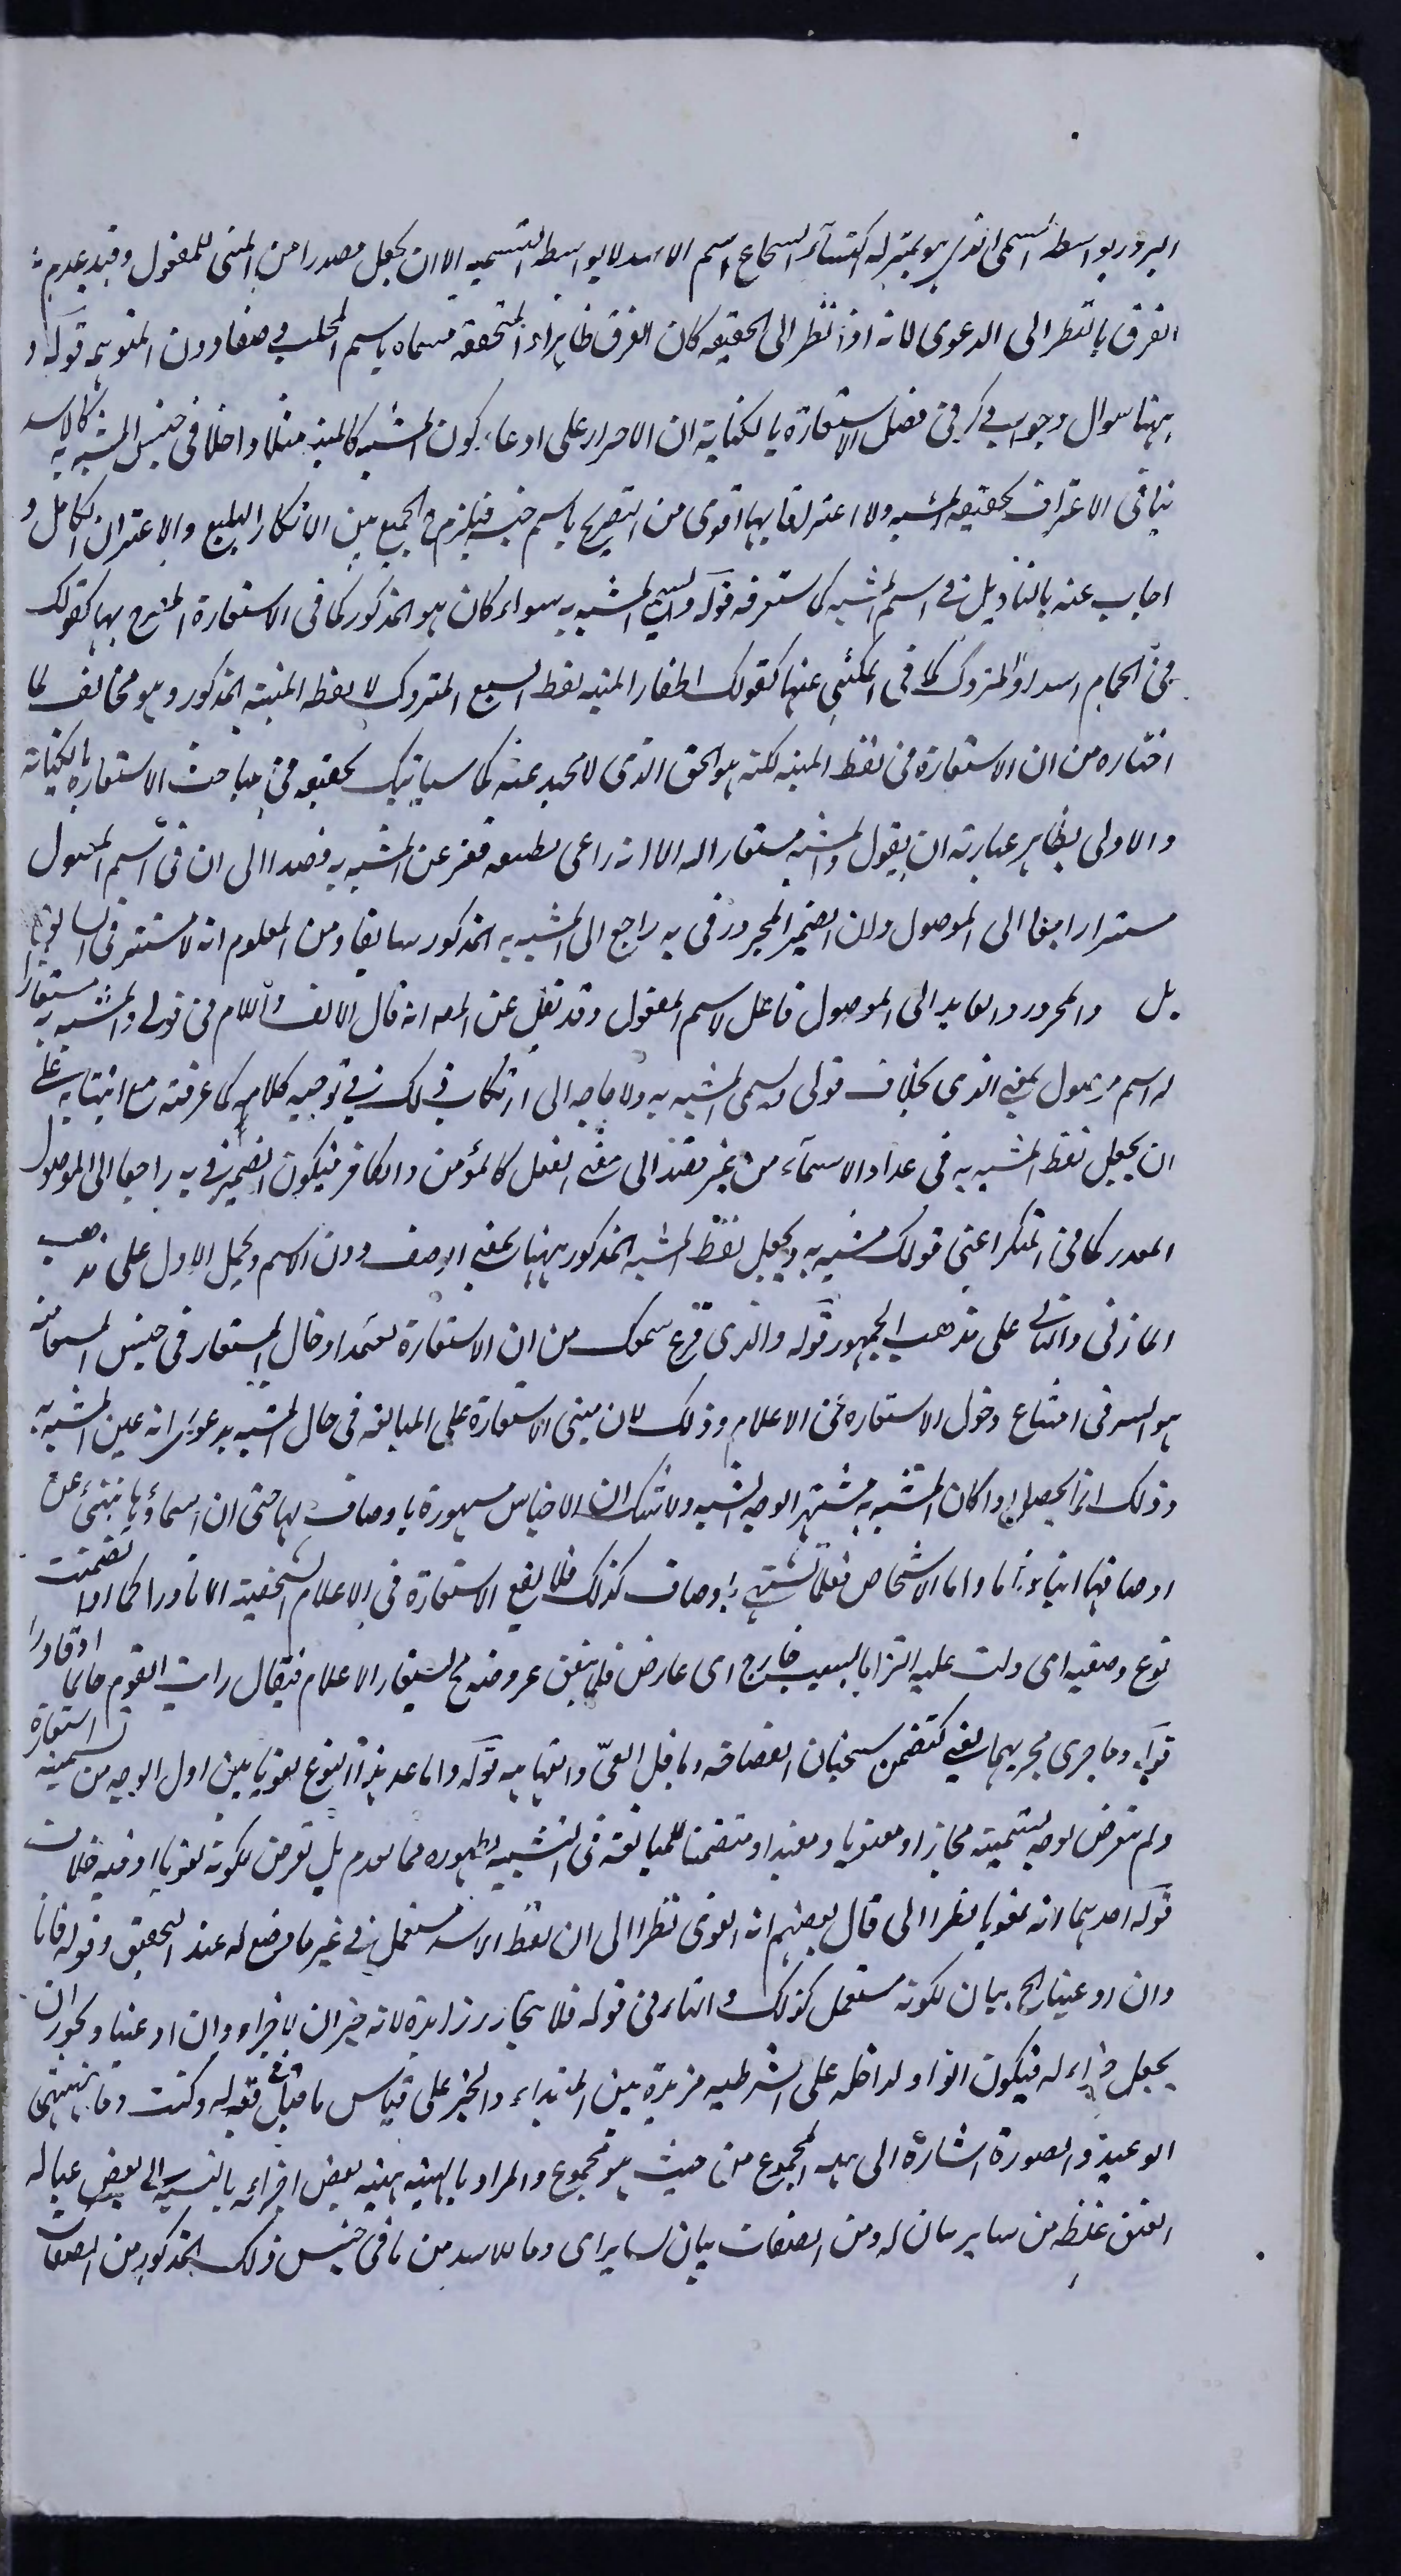 البروز بواسطة المسمى الذي هو بمنزلة اكتساء الشجاع اسم الاسد لا بواسطة التسمية الا ان يجعل مصدرا من المبنى للمفعول وقيد عدم
الفرق بالنظر الى الدعوى لانه اذا نظر الى الحقيقة كان الفرق ظاهرا المتحققة مسماه باسم المخلب دون المتوهمة قوله و
ههنا سؤال وجواب ذكر في فصل الاستعارة بالكناية ان الاصرار على ادعاء كون المشبه كالمنية مثلا داخلا في جنس المشبه به كالاسد
ينافي الاعتراف بحقيقة المشبه ولا اعتراف بها اقوى من التصريح باسم جنسه فيلزم ح الجمع بين الانكار البليغ والاعتراف الكامل و
اجاب عنه بالتاويل في اسم المشبه كما ستعرفه قوله ويسمى المشبه به سواء كان هو المذكور كما في الاستعارة المصرح بها كقولك
في الحمام اسد او المتروك كما في المكنى عنها كقولك اظفار المنية لفظ السبع المتروك لا لفظ المنية المذكور وهو مخالف لما
اختاره من ان الاستعارة في لفظ المنية لكنه هو الحق الذي لا محيد عنه كما سيأتيك تحقيقه في مباحث الاستعارة بالكناية
والاولى بظاهر عبارته ان يقول والمشبه مستعارا له الا انه راعى عن المشبه به قصدا الى ان في اسم المفعول
مستترا راجعا الى الموصول ولان الضمير المجرور في به راجع الى المشبه به المذكور سابقا ومن المعلوم انه لا مستتر في
بل والمجرور والعايد الى الموصول فاعل لاسم المفعول وقد نقل عن المص انه قال الالف واللام في قولي والمشبه به مستعارا
له اسم موصول بمعنى الذي بخلاف قولي ويسمى المشبه به ولا حاجة الى ارتكاب ذلك في توجيه كلامه كما عرفته مع ابتنائه على
ان يجعل لفظ المشبه به في عداد الاسماء من غير قصد الى معنى الفعل كالمؤمن والكافر فيكون الضمير في به راجعا الى الموصول
المقدر كما في المنكر اعني قولك مشبه به ويجعل لفظ المشبه المذكور ههنا بمعنى الوصف دون الاسم ويحمل الاول على مذهب
المازني والثاني على مذهب الجمهور قوله والذي قرع سمعك من ان الاستعارة تعتمد ادخال المستعار في جنس المستعار منه
هو السر في امتناع دخول الاستعارة في الاعلام وذلك لان مبنى الاستعارة على المبالغة في حال المشبه بدعوى انه عين المشبه به
وذلك انما يحصل اذا كان المشبه به مشتهرا بوجه الشبه ولا شك ان الاجناس مشهورة باوصاف لها حتى ان اسماؤها تنبئ عن
اوصافها انباء تاما واما الاشخاص فقلما تشتهر باوصاف كذلك فلا يقع الاستعارة في الاعلام الشخصية الا نادرا كما اذا تضمنت
نوع وصفية اى دلت عليه التزاما بسبب خارج اى عارض فلما يتفق عروضه ح يستعار الاعلام فيقال رايت اليوم حاتما او مادرا
قوله وما جرى مجريهما يعني كتضمن سحبان الفصاحة وباقل العى والفهاهة قوله واما عد هذا النوع لغويا بين اول الوجه من تسمية استعارة
ولم يتعرض لوجه تسميته مجازا ومعنويا ومفيدا ومتضمنا للمبالغة في التشبيه لظهوره مما تقدم بل تعرض لكونه لغويا اذ فيه خلاف
قوله احدهما لانه لغويا نظرا الى قال بعضهم انه لغوي نظرا الى ان لفظ الاسد مستعمل في غير ما وضع له عند التحقيق وقوله فانا
وان ادعينا الخ بيان لكونه مستعمل كذلك والفاء في قوله فلا نتجاوز زايدة لانه خبر ان لا جزاء وان ادعينا ويجوز ان
يجعل جزاء له فيكون الواو الداخلة على الشرطية مزيدة بين المبتداء والخبر على قياس ما قيل في قوله وكنت وما ينهنهني
الوعيد والصورة اشارة الى هيئة المجموع من حيث هو مجموع والمراد بالهيئة هيئة بعض اجزائه بالنسبة الى بعض عبالة
العنق غلظه من ساير بيان له ومن الصفات بيان لساير اى وما للاسد من ما في جنس ذلك المذكور من الصفات